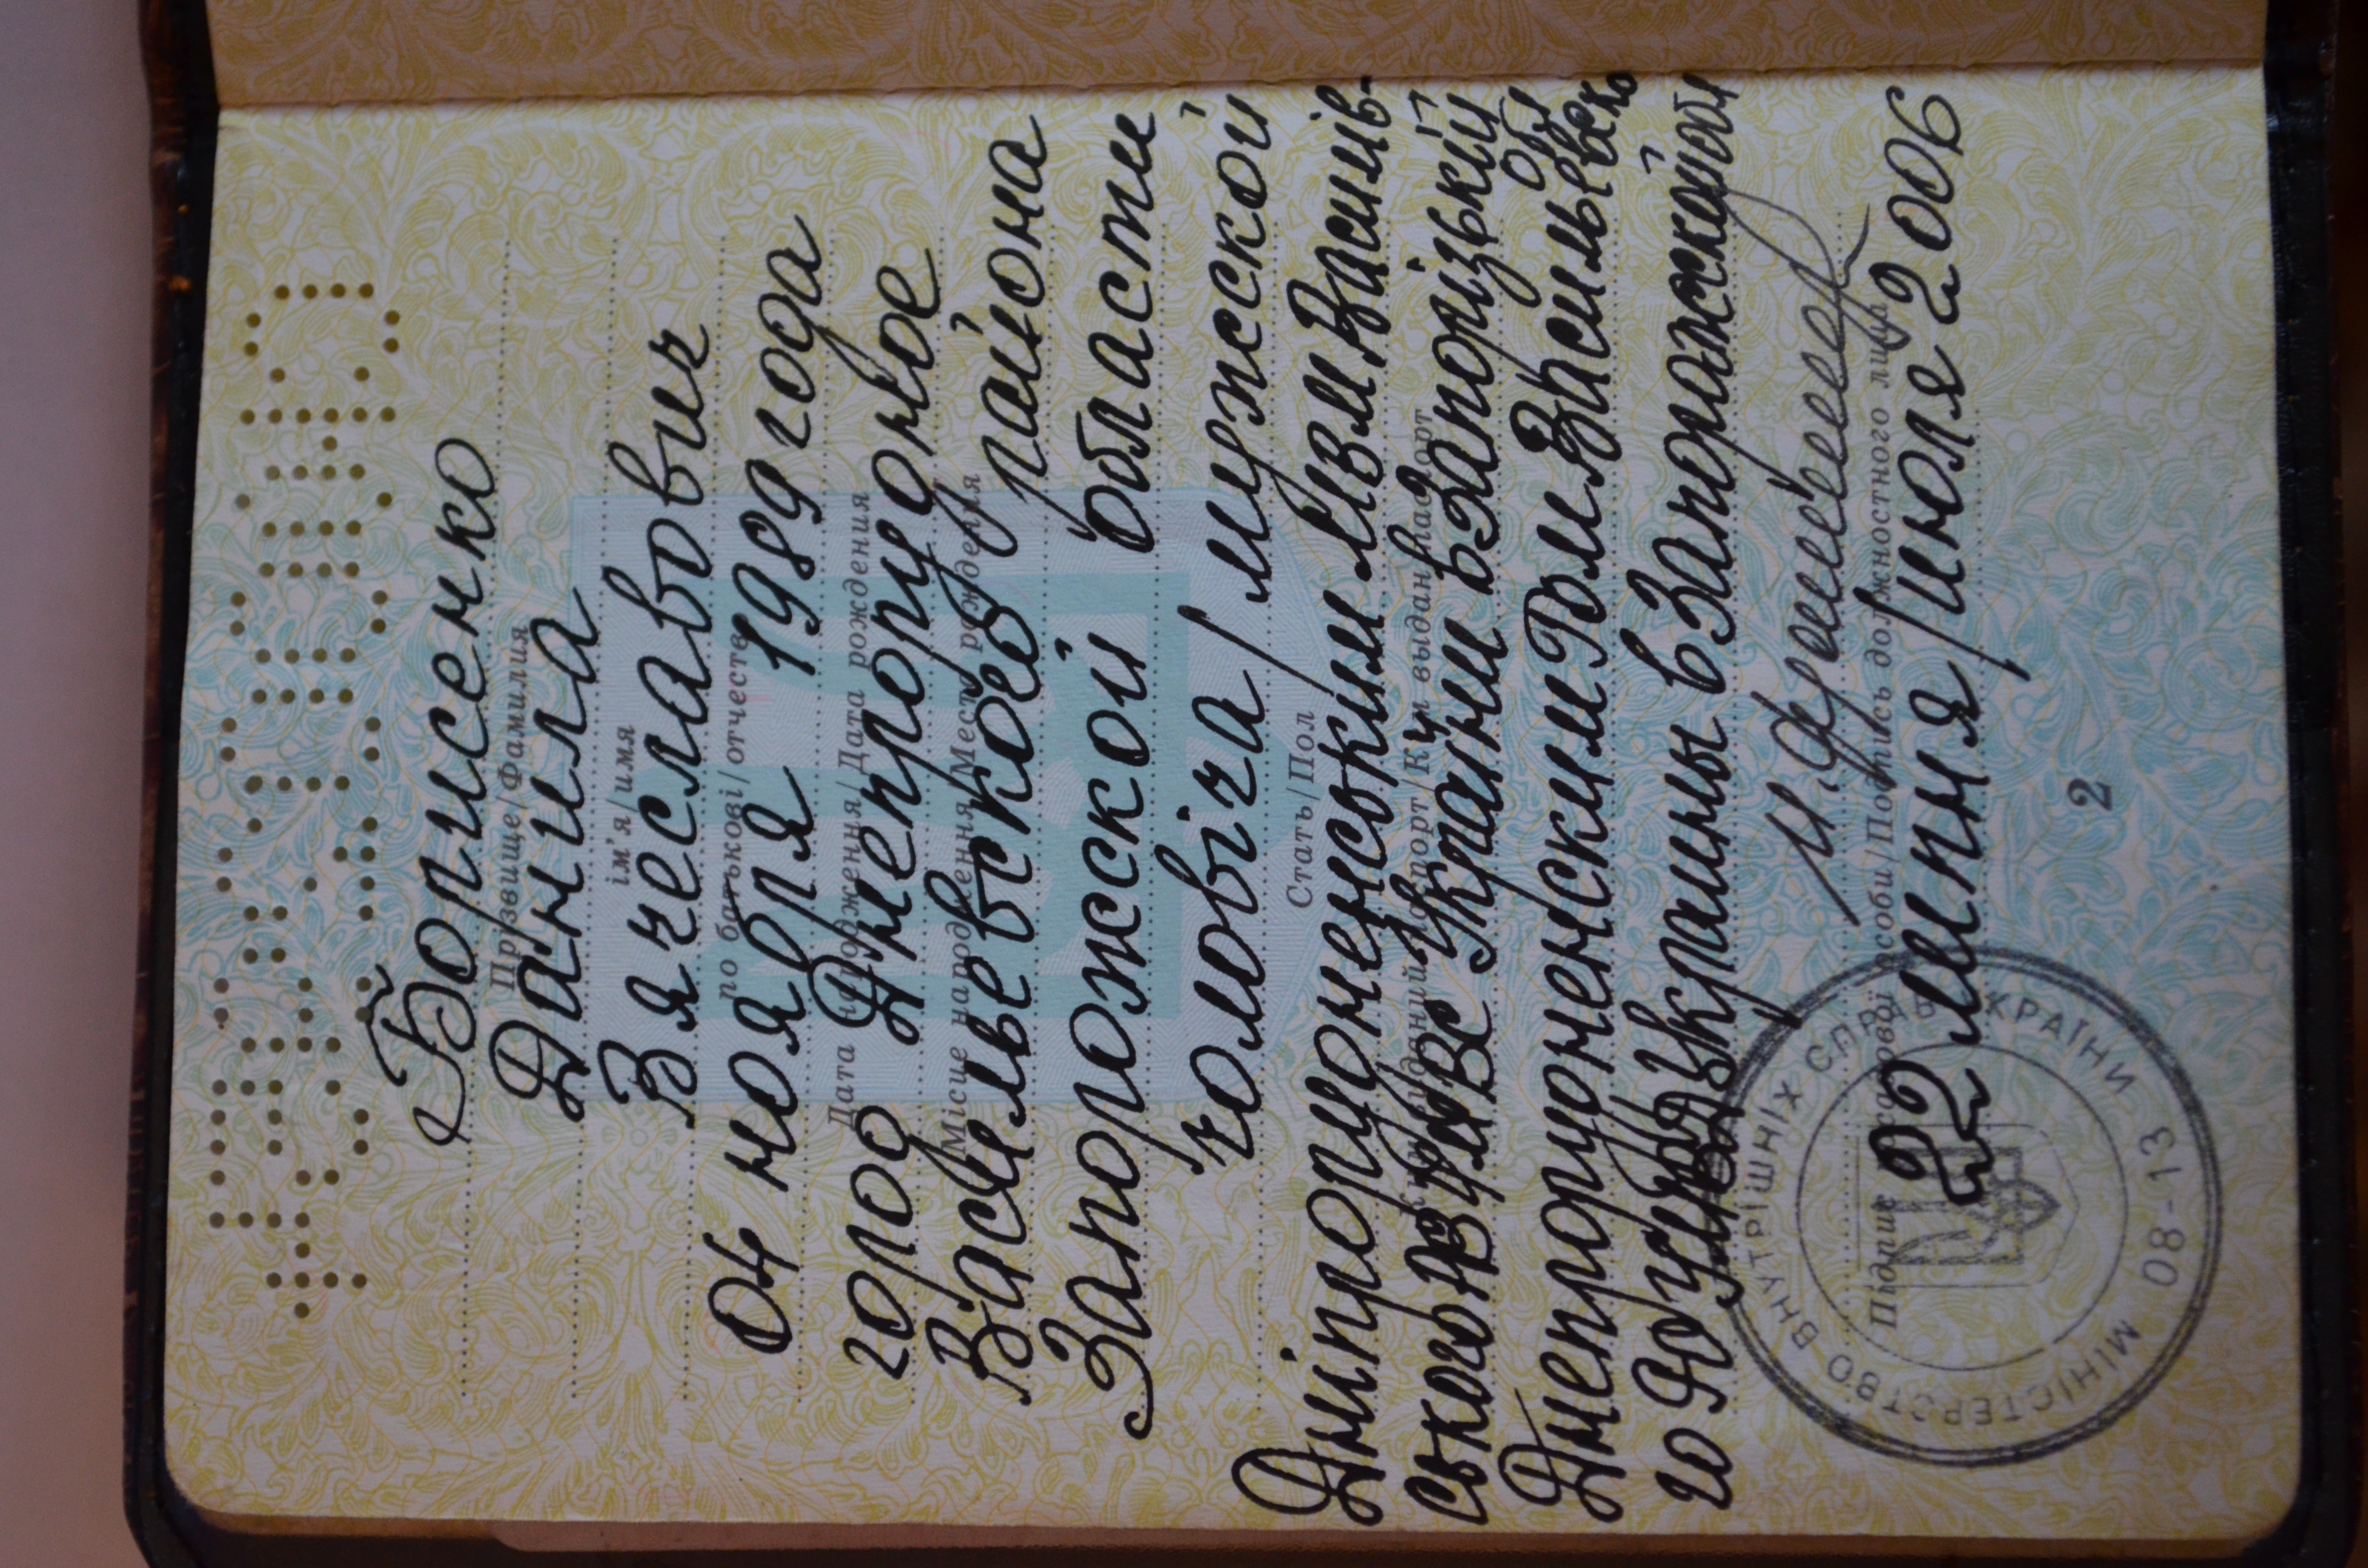 Борисенко
Прізвище/Фамилия
Данила
ім'я/имя
Вячеславович
по батькові/отчество
04 ноября 1989 года
Дата народження/Дата рождения
город Днепрорудное
Місце народження/Место рождения
Васильевского района
Запорожской области
чоловіча/мужской
Стать/Пол
Дніпрорудненським МВМ Василів-
ського РВ УМВС України в Запорізькій обл
Днепрорудненским ГОМ Васильевско
го РО УМВД Украины в Запорожской обл
Підпис посадової особи/Подпись должностного лица
22 липня/июля 2006
МІНІСТЕРСТВО ВНУТРІШНІХ СПРАВ УКРАЇНИ 08-13
2